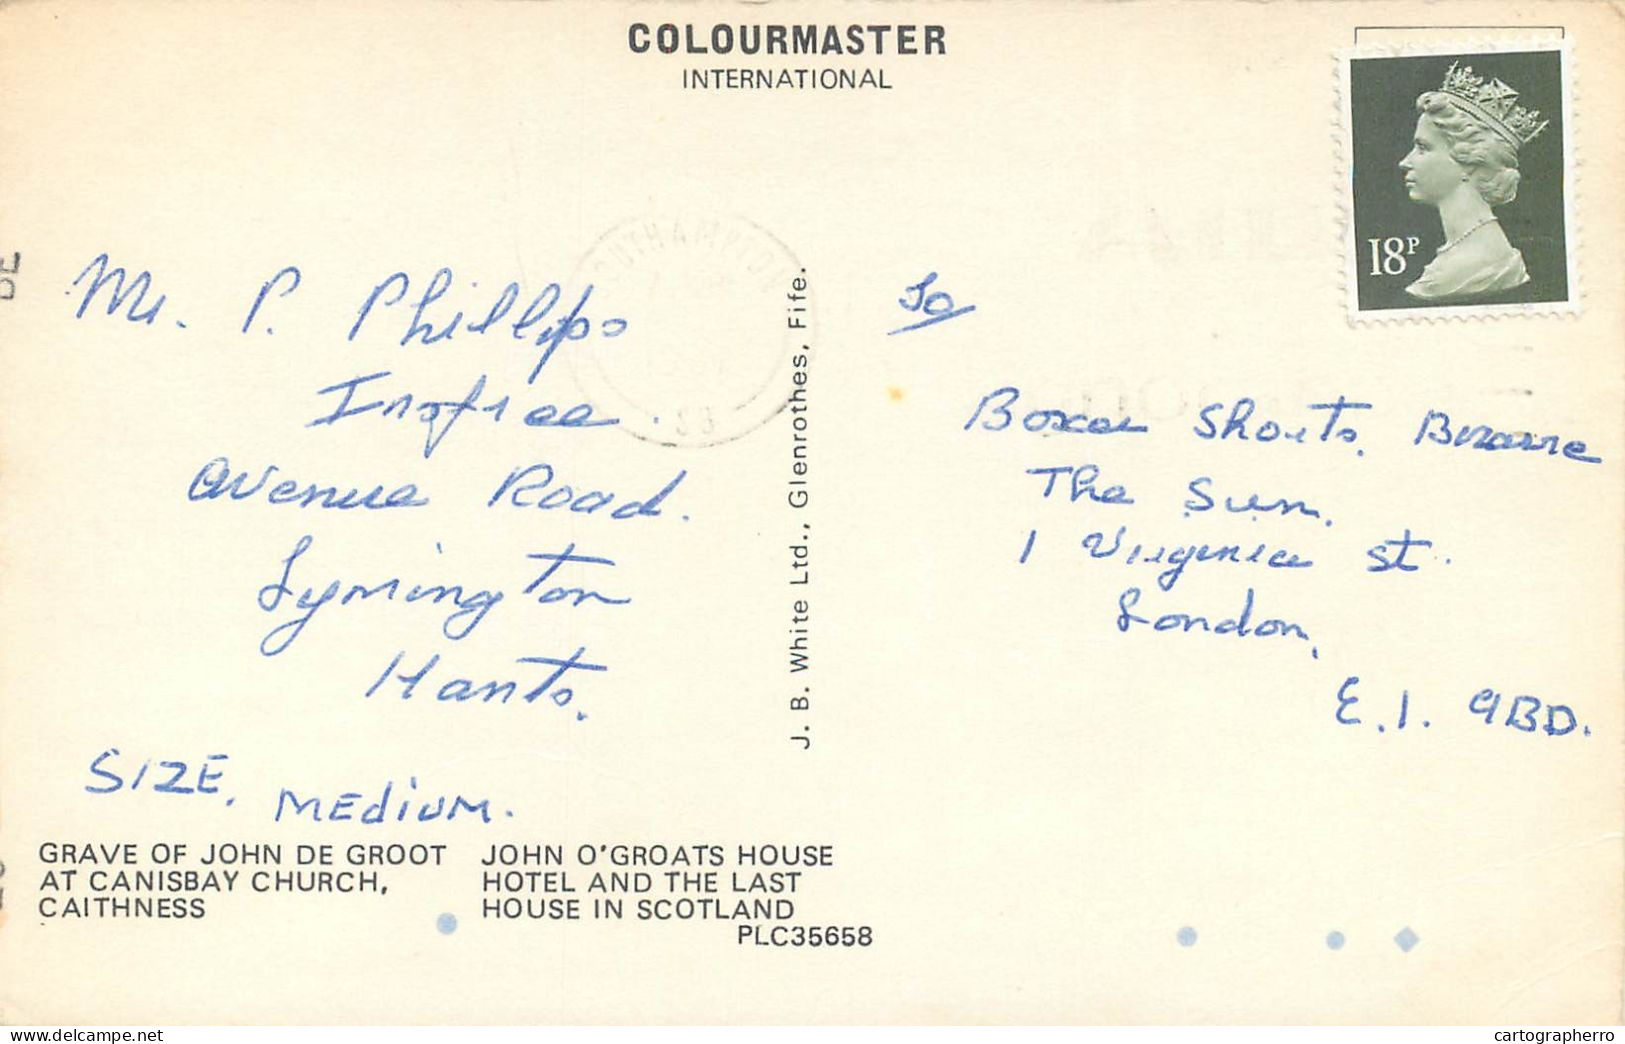 COLOURMASTER
INTERNATIONAL
18P
SOUTHAMPTON
Mr. P. Phillips
Avenue Road.
Lymington
Hants.
SIZE, MEDIUM.
GRAVE OF JOHN DE GROOT
AT CANISBAY CHURCH,
CAITHNESS
JOHN O'GROATS HOUSE
HOTEL AND THE LAST
HOUSE IN SCOTLAND
PLC35658
J. B. White Ltd., Glenrothes, Fife.
To
Boxer Shorts, Bizarre
The Sun.
1 Virginia St.
London,
E.1. 9BD.
cartographerro